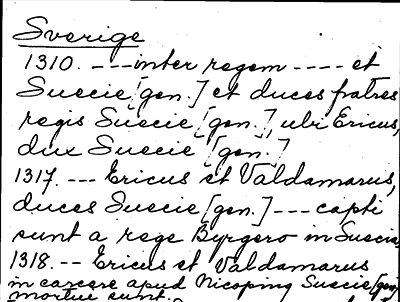 Sverige
1310. --- inter regem ---- et
Suecie [gen.] et duces fratres
regis Suecie [gen.], ubi Ericus,
dux Suecie [gen.]
1317. --- Ericus et Valdamarus,
duces Suecie [gen.] --- capti
sunt a rege Byrgero in Suecia,
1318. -- Ericus et Valdamarus
in carcere apud Nicoping Suecie [gen.]
mortui sunt.